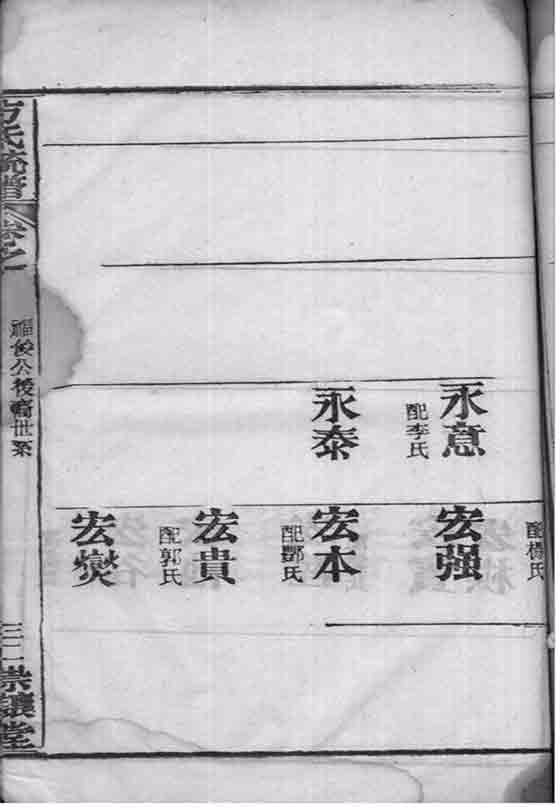 配楊氏
永意
配李氏
永泰
宏强
宏本
配鄷氏
宏貴
配郭氏
宏爕
方氏統譜
卷之
福俊公後裔世系
三二
崇讓堂